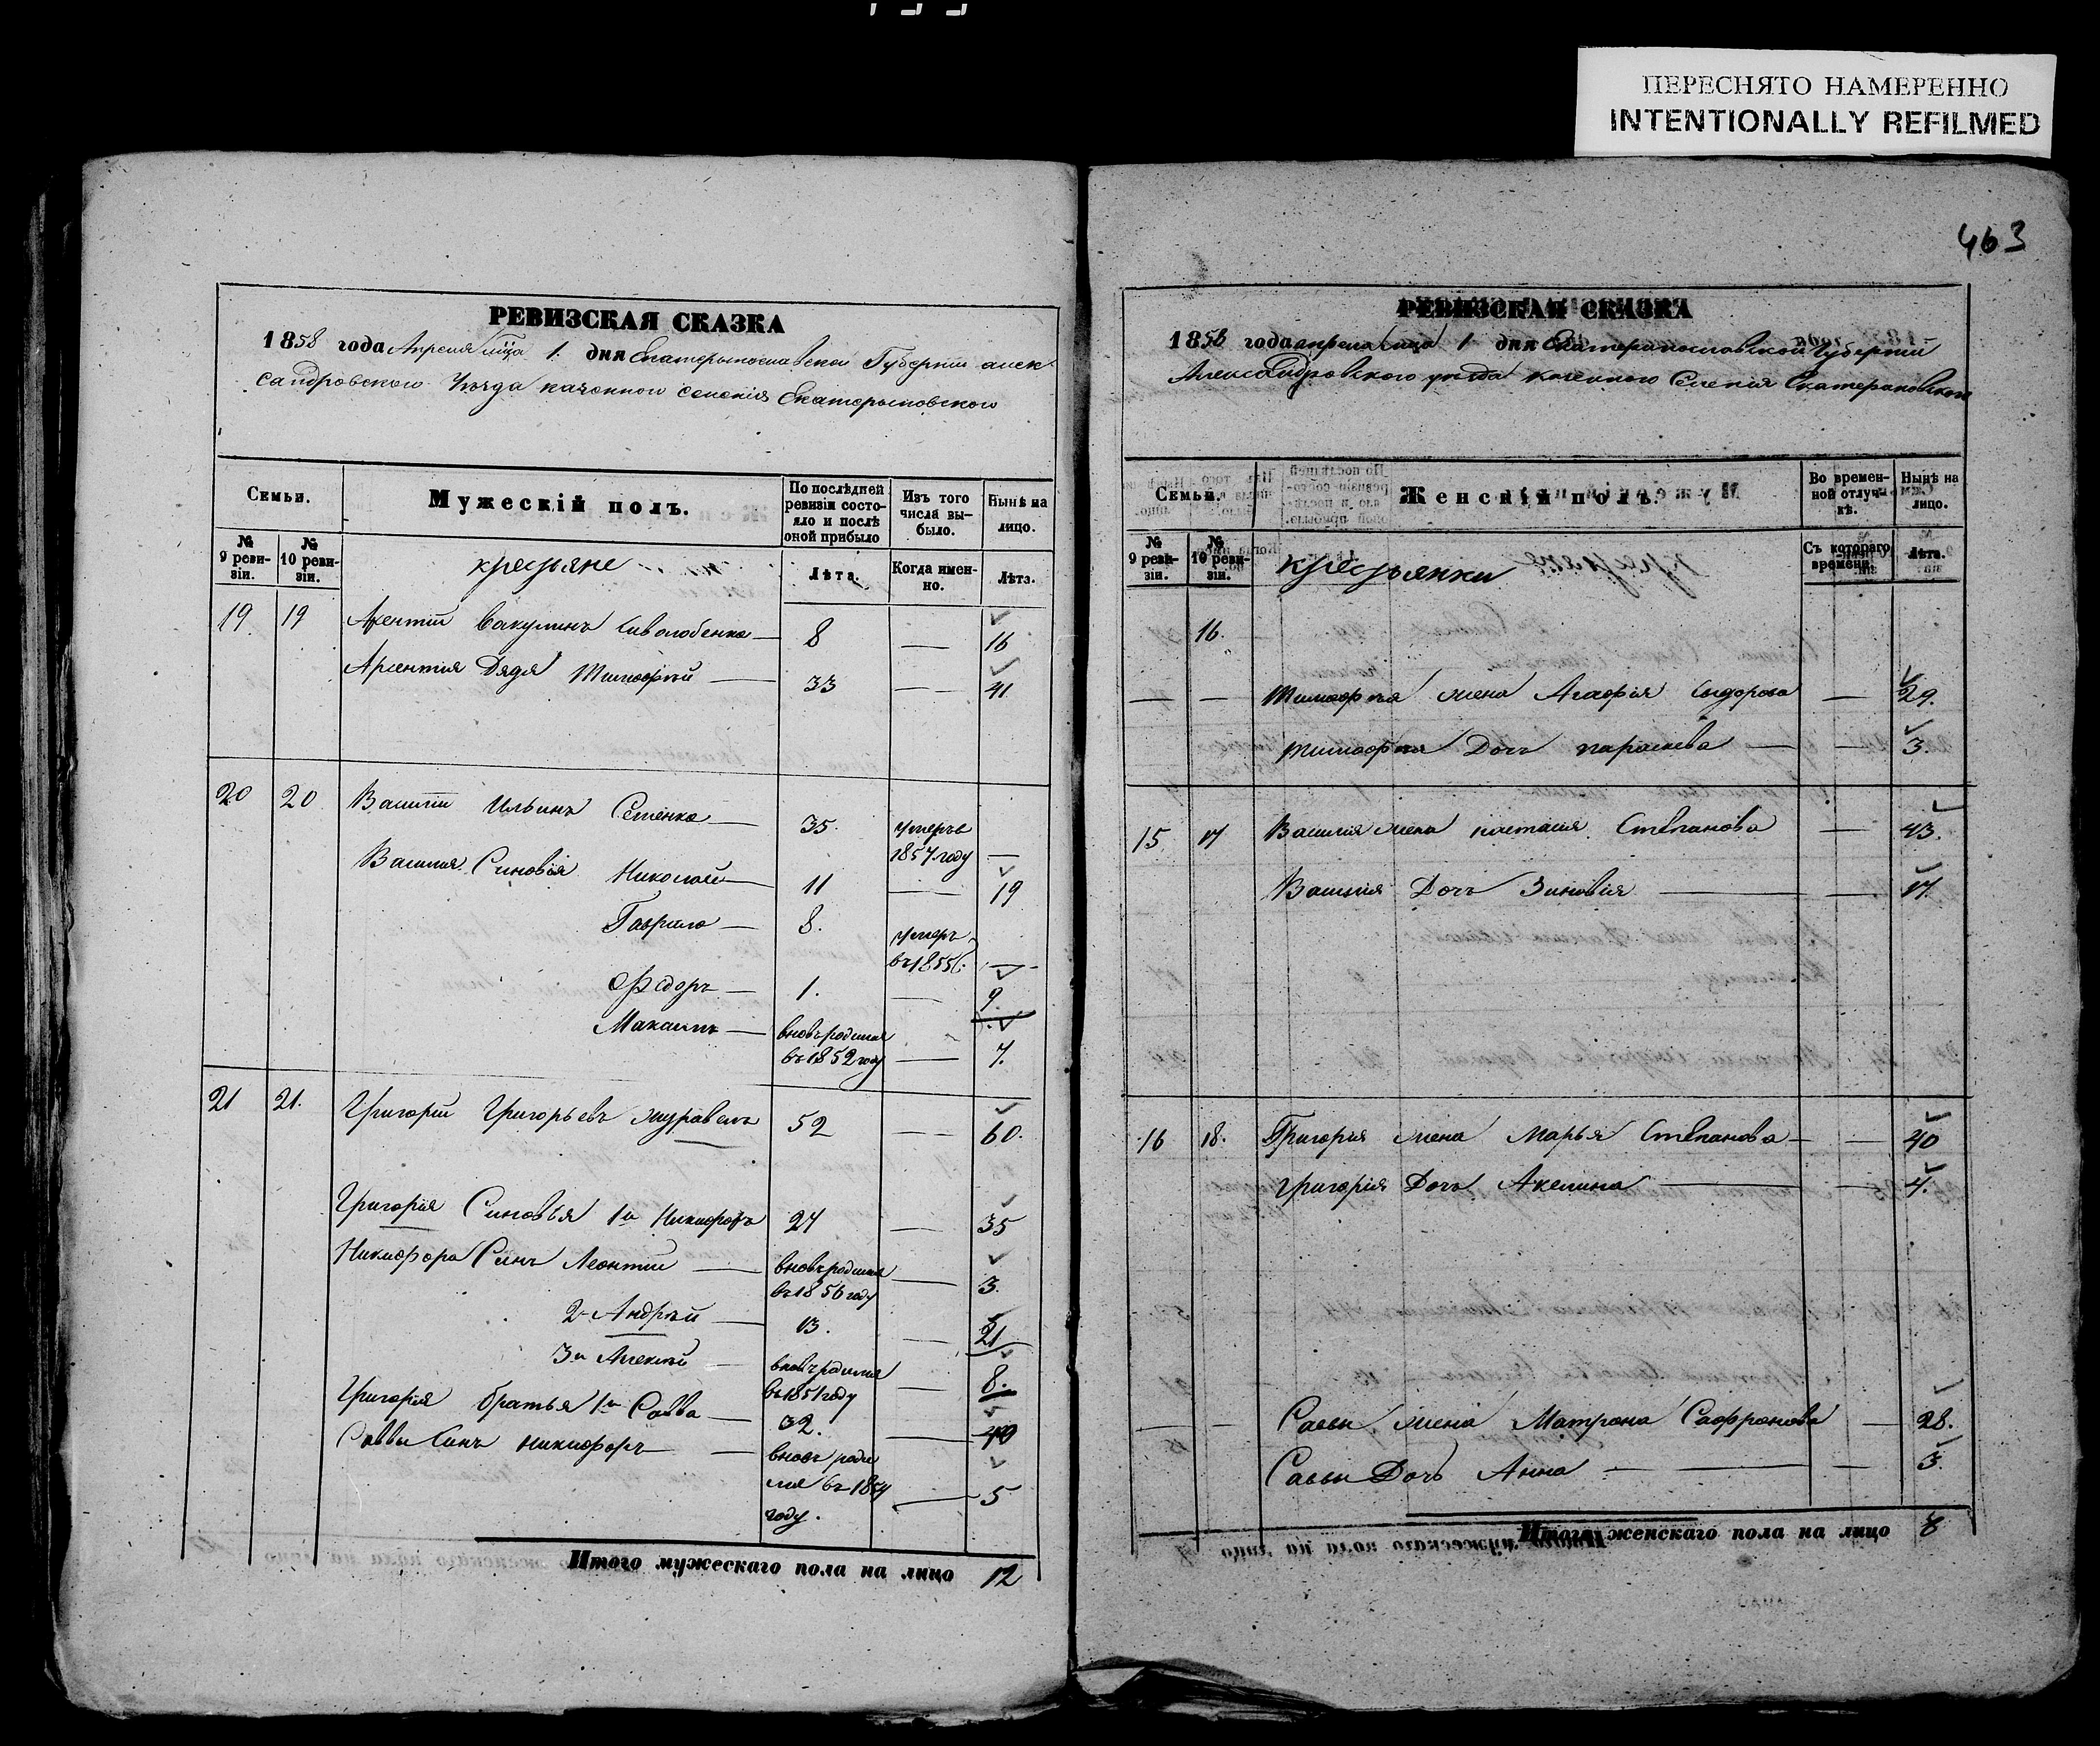 ПЕРЕСНЯТО НАМЕРЕННО
INTENTIONALLY REFILMED
463
РЕВИЗСКАЯ СКАЗКА
1858 года Апреля м̃ца 1. дня Екатерынославской Губернии алек
сандровского Уѣзда казенного селения Екатерыновского
Семьи.
Мужескій полъ.
По послѣдней ревизіи состояло и послѣ оной прибыло
Изъ того числа выбыло.
Нынѣ на лицо.
№ 9 ревизіи.
№ 10 ревизіи.
крестьяне
Лѣта.
Когда именно.
Лѣта.
19 19 Арсентий Вакулинъ Сиволобенко — 8 — 16
Арсентия Дядя Тимофѣй — 33 — 41
20 20 Василий Ильинъ Сетенко — 35. умеръ в 1857 году —
Василия Синовія Николай — 11 — 19
Гаврило — 8. умеръ въ 1855 г. —
Федоръ — 1. — 9
Максимъ — вновь родился въ 1852 году — 7.
21 21. Григорий Григорьевъ журавель 52 — 60.
Григория Синовья 1й Никифоръ 27 — 35
Никифора Синъ Леонтий — вновь родился въ 1856 году — 3.
2й Андрѣй — 13. — 21
3й Алексѣй — вновь родился въ 1851 году — 8.
Григория братья 1й Савва — 32. — 40
Саввы Синъ никифоръ — вновь родился въ 1854 году. — 5
Итого мужескаго пола на лицо 12
РЕВИЗСКАЯ СКАЗКА
1858 года апреля м̃ца 1 дня Екатеринославской Губернии
Александровского уѣзда казенного Селения Екатериновского
Семьи.
Женскій полъ.
Во временной отлучкѣ.
Нынѣ на лицо.
№ 9 ревизіи.
№ 10 ревизіи.
крестьянки
Съ котораго времени.
Лѣта.
16.
— — Тимофея жена Агафия Сыдорова — 29.
тимофея Дочь параскева — — 3.
15. 17 Василия жена настасия Степанова — 43.
Василия Дочь Зиновия — — 17.
16 18. Григория жена Марья Степанова — — 40
григорія Дочь Акелина — — 4.
— — Саввы жена Матрона Сафронова — 28.
Саввы Дочь Анна — — 3.
Итого женскаго пола на лицо 8